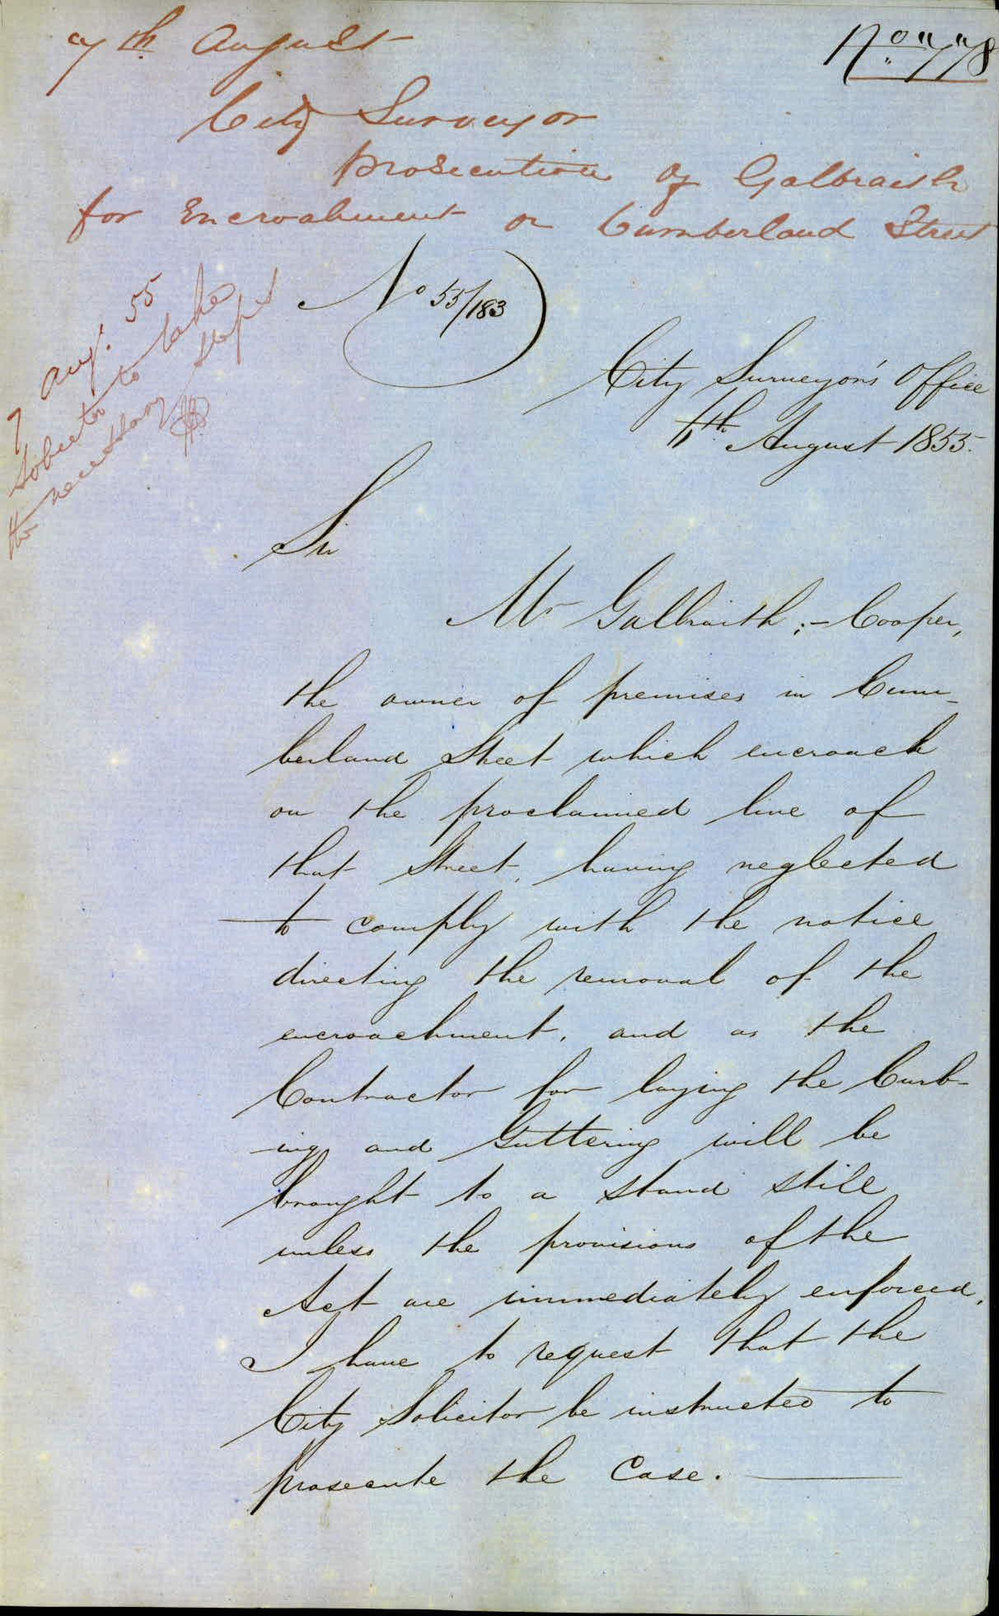 7th August
No "778
City Surveyor
prosecution of Galbraith
for Encroahment on Cumberland Street
No 55/183
7 Aug: 55
Solicitor to take
the necessary steps
City Surveyor's Office
4th August 1855.
Sir
Mr Galbraith;- Cooper,
the owner of premises in Cum-
berland Street which encroach
on the proclaimed line of
that Street, having neglected
to comply with the notice
directing the removal of the
encroachment, and as the
Contractor for laying the Curb-
-ing and Guttering will be
brought to a stand still
unless the provisions of the
Act are immediately enforced,
I have to request that the
City Solicitor be instructed to
prosecute the Case.